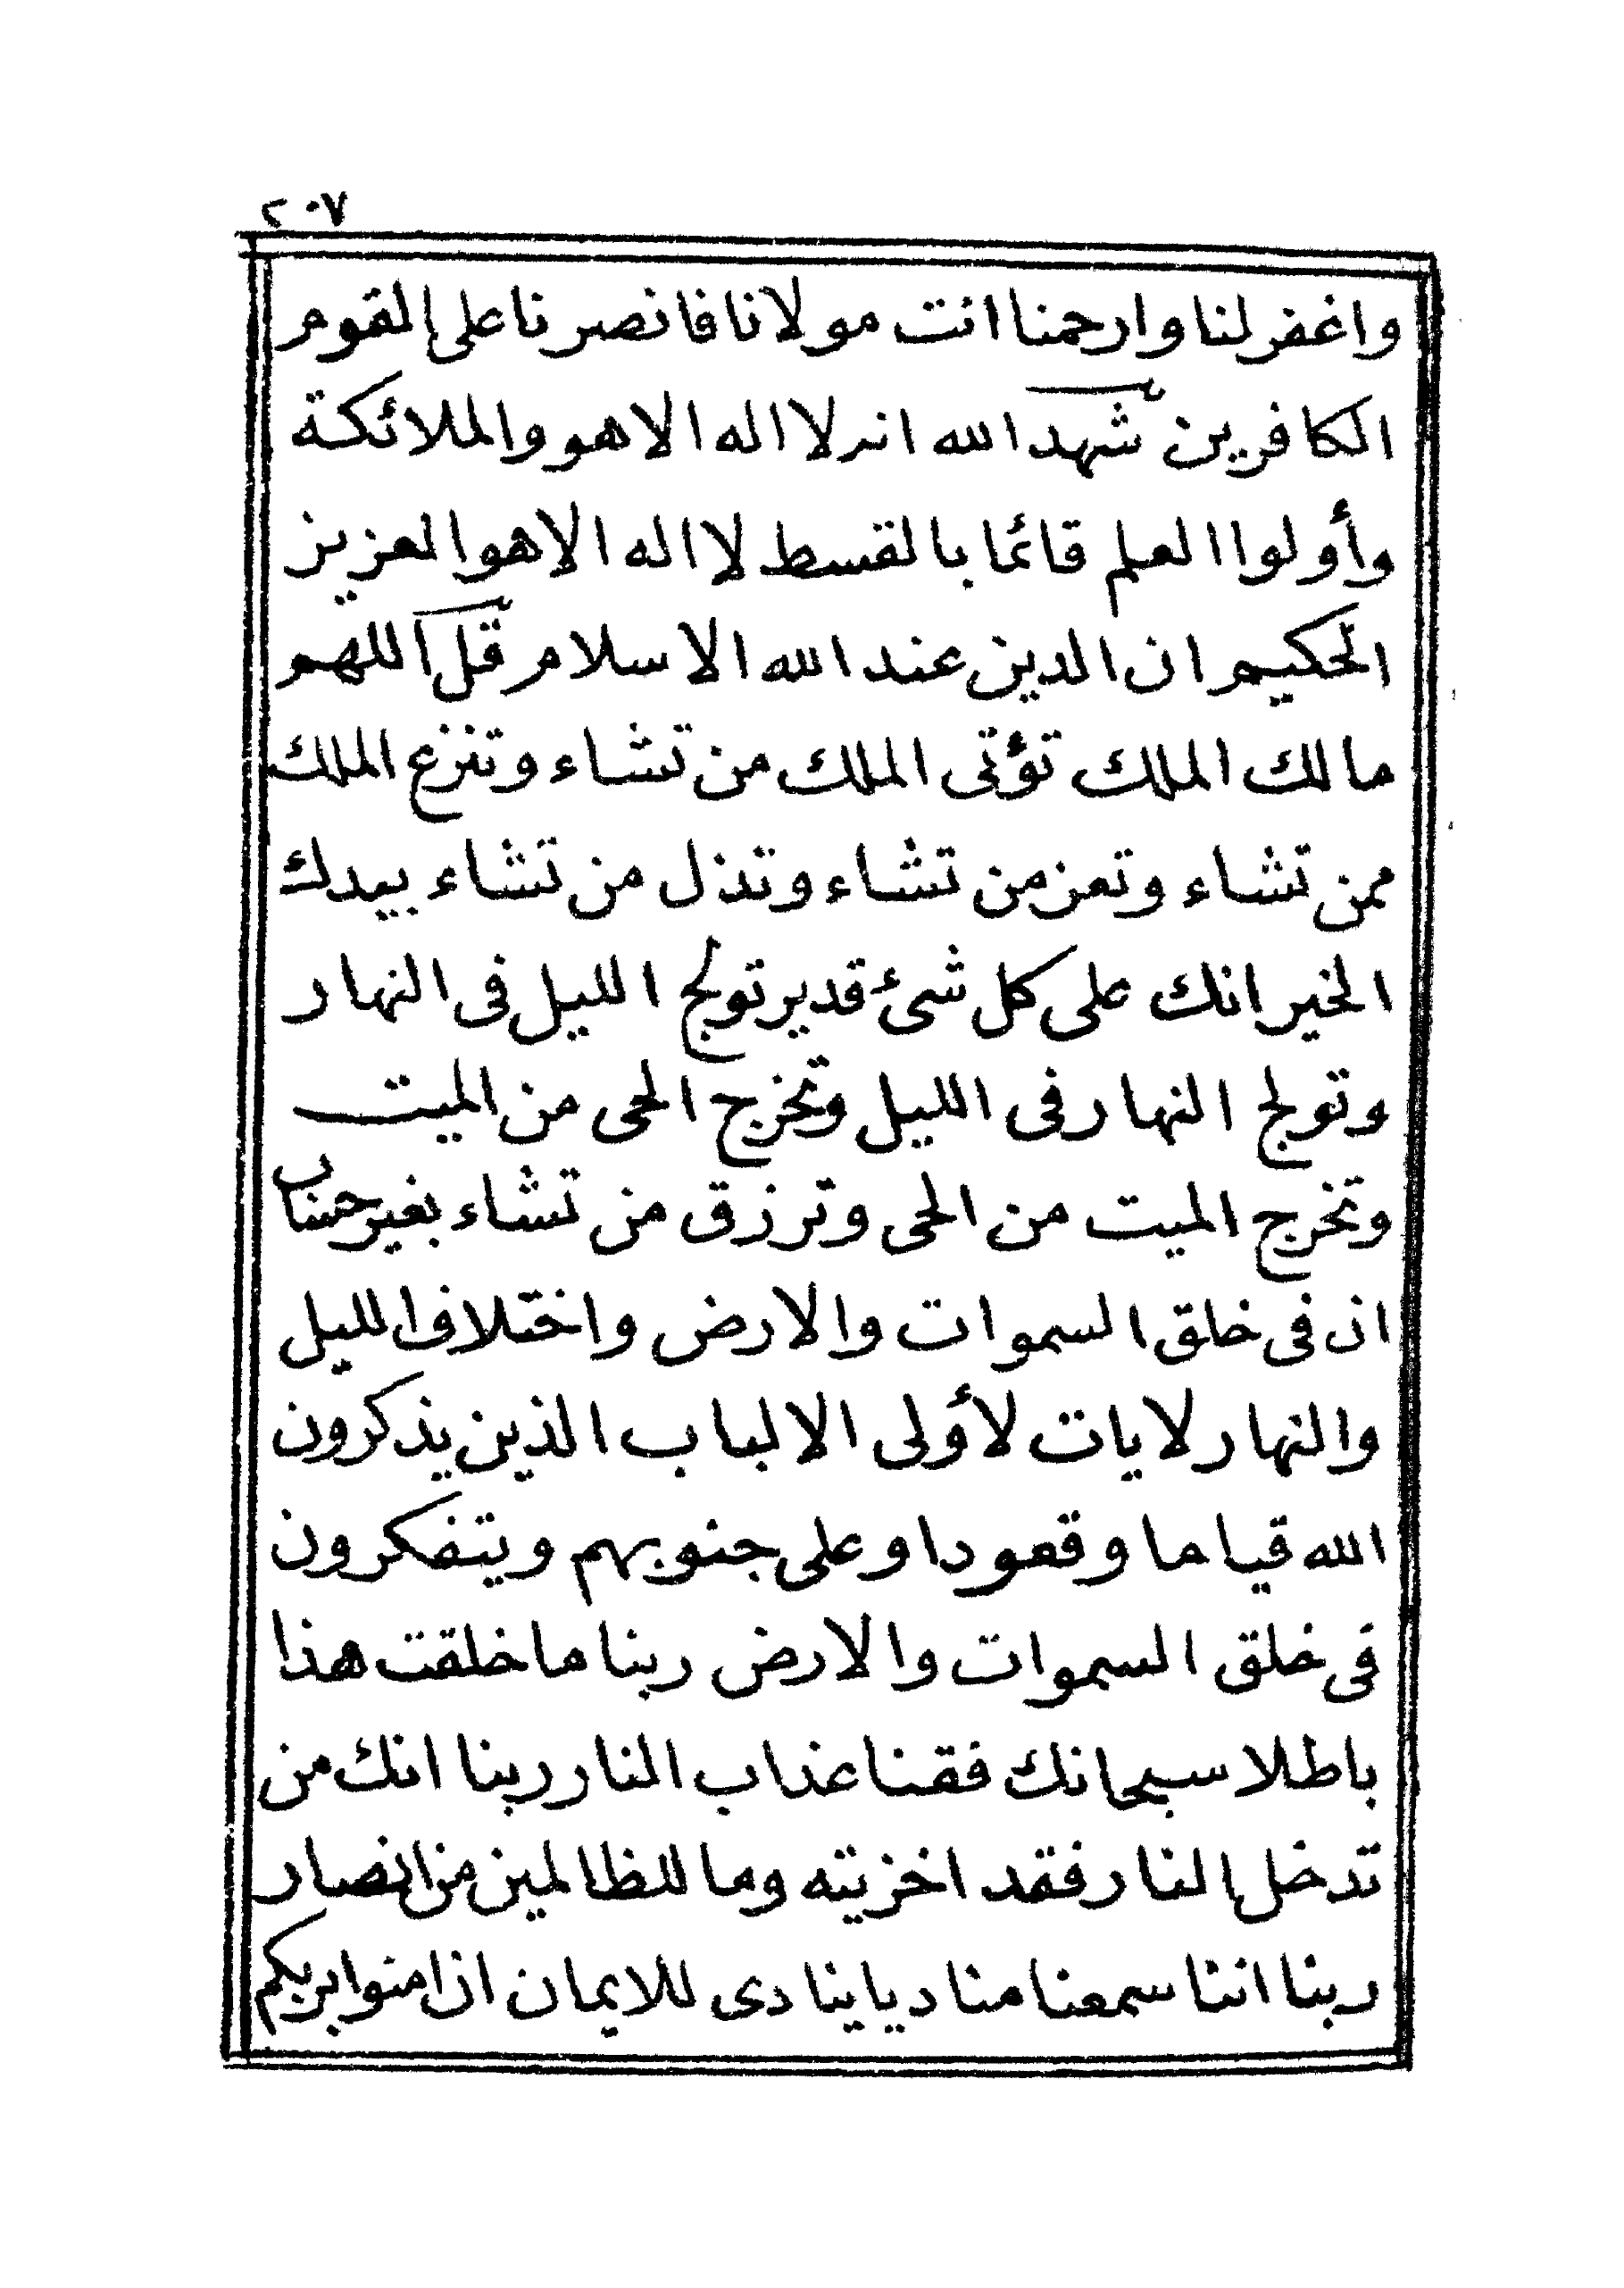 ٢٠٧
واغفر لنا وارحمنا انت مولانا فانصرنا على القوم
الكافرين شهد الله انه لا اله الا هو والملائكة
وأولوا العلم قائما بالقسط لا اله الا هو العزيز
الحكيم ان الدين عند الله الاسلام قل اللهم
مالك الملك تؤتى الملك من تشاء وتنزع الملك
ممن تشاء وتعز من تشاء وتذل من تشاء بيدك
الخير انك على كل شئ قدير تولج الليل فى النهار
وتولج النهار فى الليل وتخرج الحى من الميت
وتخرج الميت من الحى وترزق من تشاء بغير حساب
ان فى خلق السموات والارض واختلاف الليل
والنهار لايات لأولى الالباب الذين يذكرون
الله قياما وقعودا وعلى جنوبهم ويتفكرون
فى خلق السموات والارض ربنا ما خلقت هذا
باطلا سبحانك فقنا عذاب النار ربنا انك من
تدخل النار فقد اخزيته وما للظالمين من انصار
ربنا اننا سمعنا مناديا ينادى للايمان ان امنوا بربكم